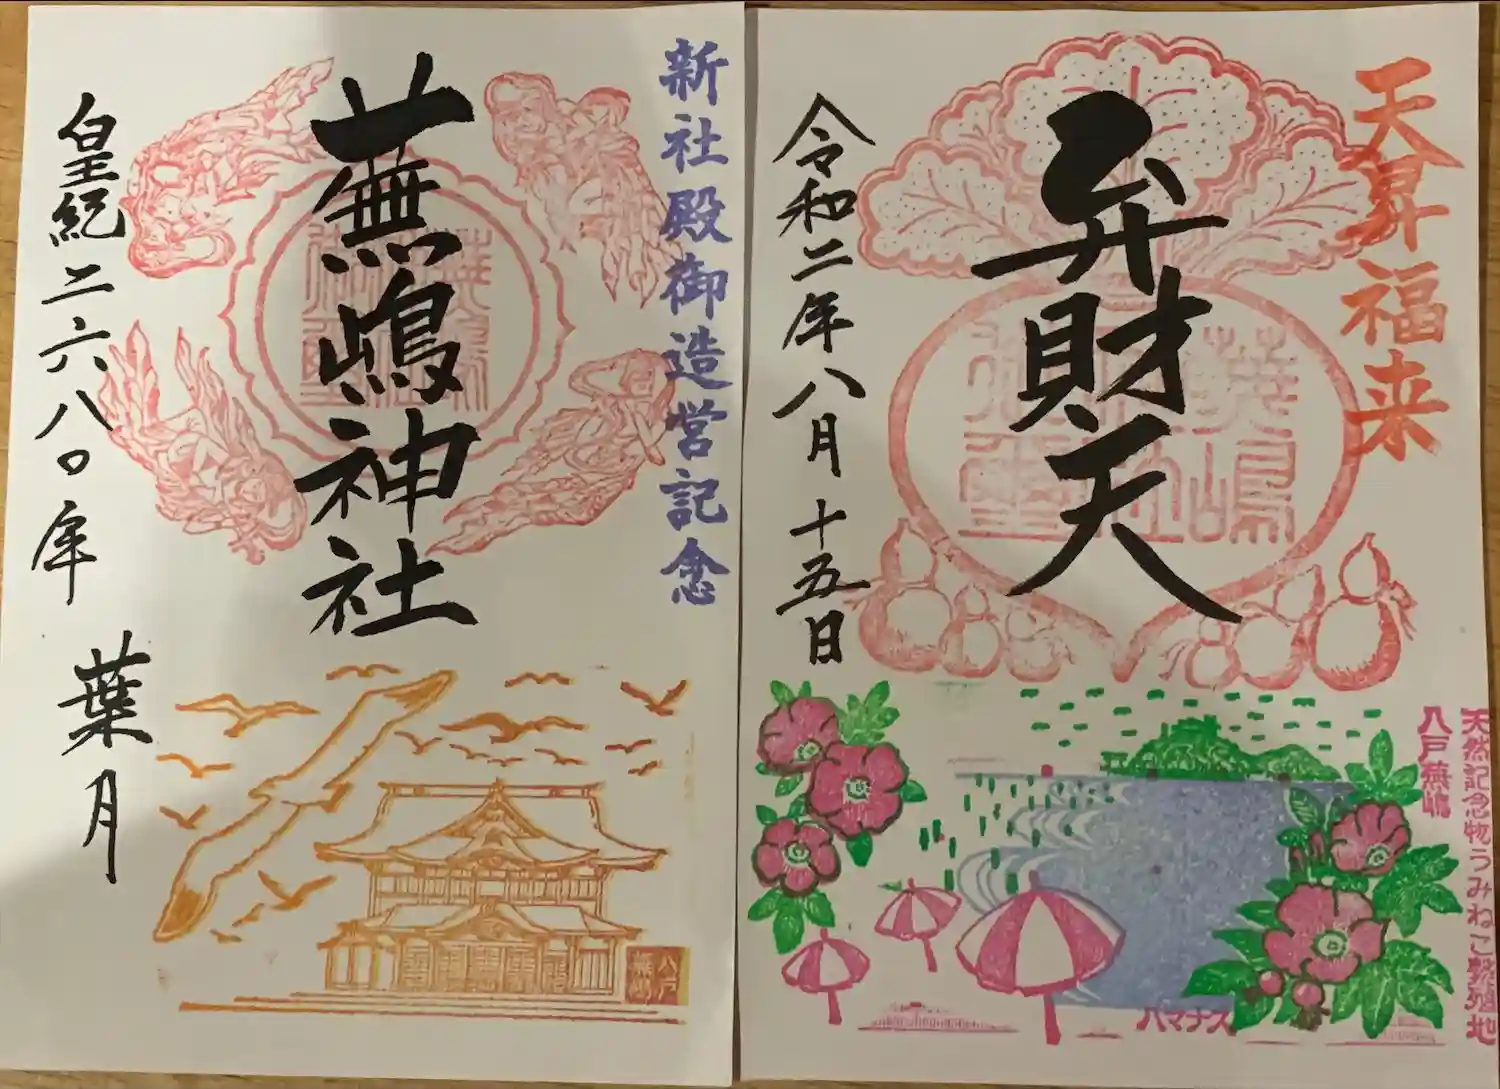 新社殿御造営記念
蕪嶋神社
皇紀二六八〇年 葉月
八戸
蕪嶋
天昇福来
弁財天
令和二年八月十五日
天然記念物うみねこ繁殖地
八戸蕪嶋
ハマナス